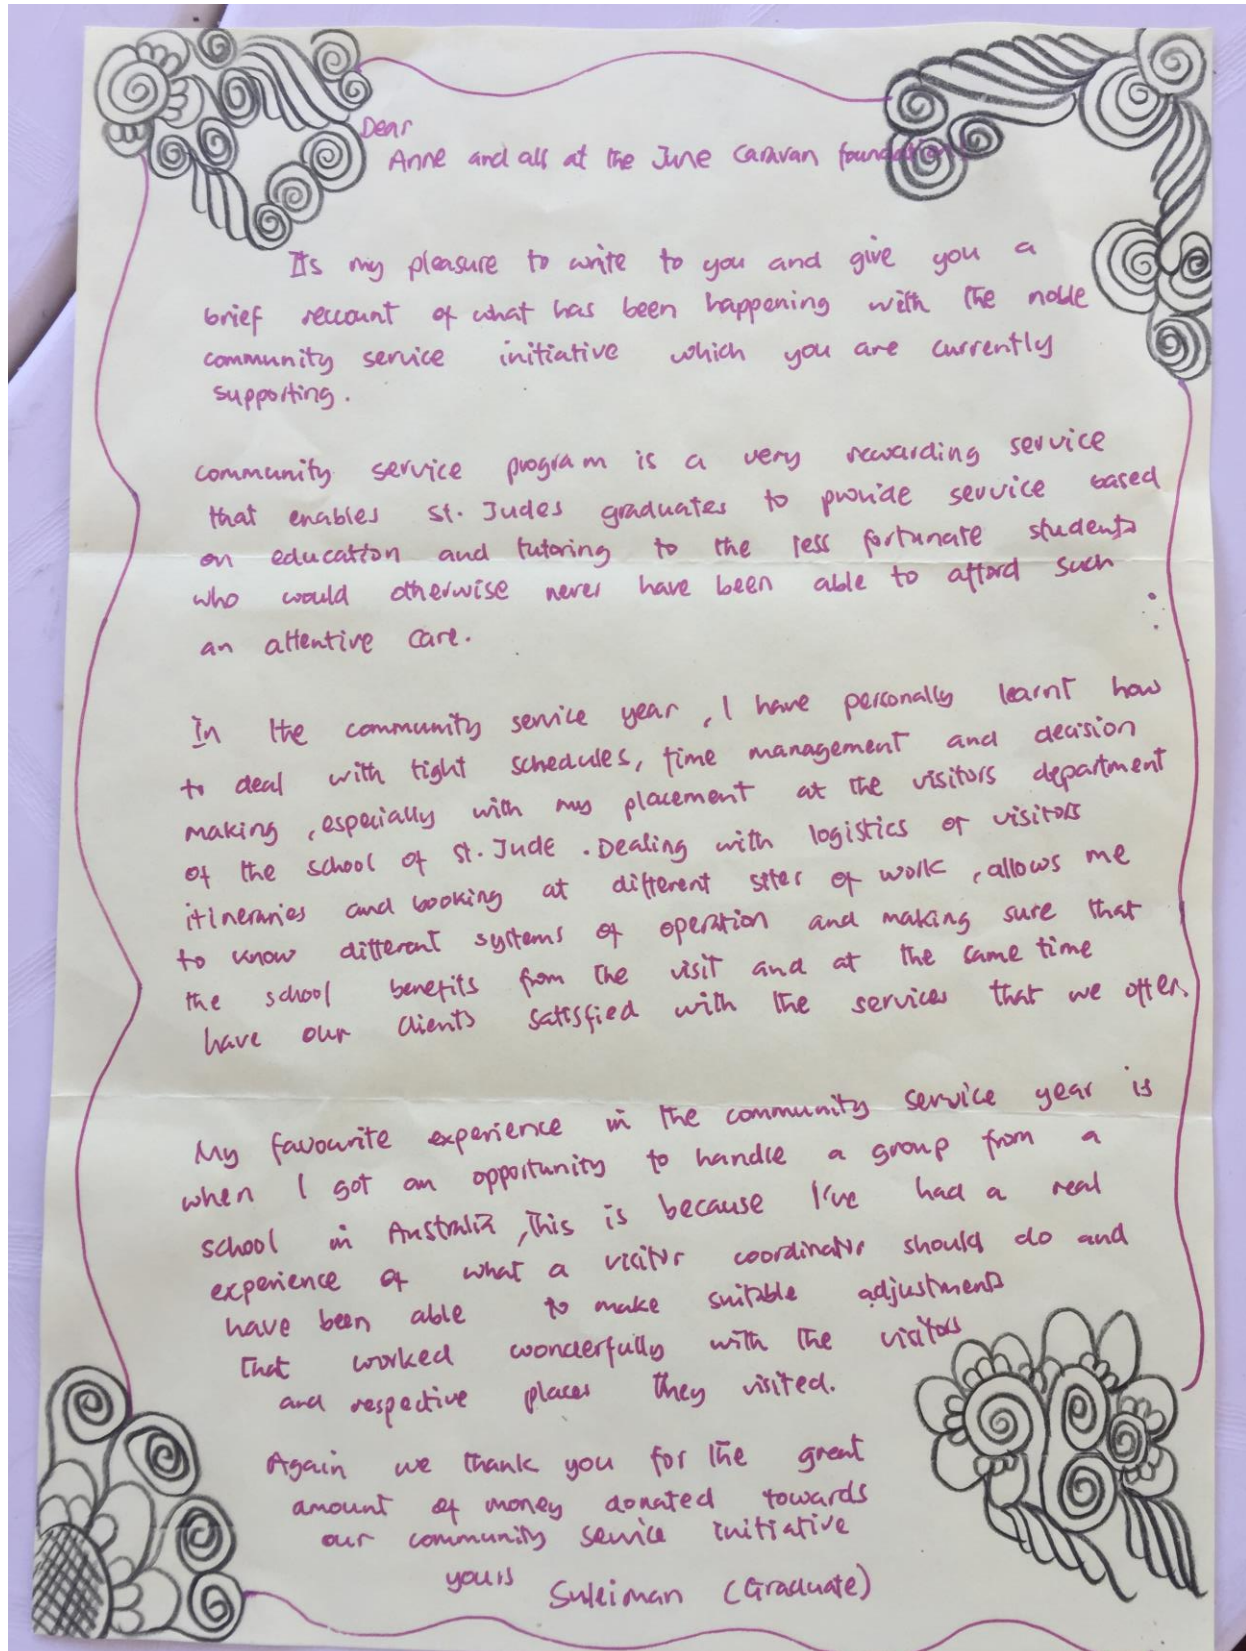 Dear
Anne and all at the June Caravan foundation!
Its my pleasure to write to you and give you a
brief reccount of what has been happening with the noble
community service initiative which you are currently
supporting.
community service program is a very rewarding service
that enables St. Judes graduates to provide service based
on education and tutoring to the less fortunate students
who would otherwise never have been able to afford such
an attentive care.
In the community service year, I have personally learnt how
to deal with tight schedules, time management and decision
making, especially with my placement at the visitors department
of the school of St. Jude. Dealing with logistics of visitors
itineraries and booking at different sites of work, allows me
to know different systems of operation and making sure that
the school benefits from the visit and at the same time
have our clients satisfied with the services that we offer.
My favourite experience in the community service year is
when I got an opportunity to handle a group from a
school in Australia, This is because I've had a real
experience of what a visitor coordinator should do and
have been able to make suitable adjustments
that worked wonderfully with the visitors
and respective places they visited.
Again we thank you for the great
amount of money donated towards
our community service initiative
yours Suleiman (Graduate)